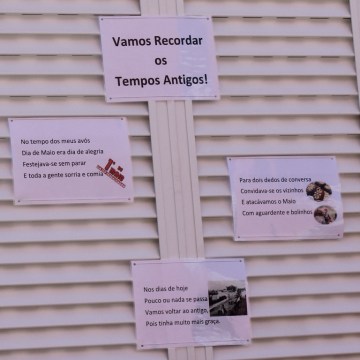 Vamos Recordar
os
Tempos Antigos!
No tempo dos meus avós
Dia de Maio era dia de alegria
Festejava-se sem parar
E toda a gente sorria e comia
Para dois dedos de conversa
Convidava-se os vizinhos
E atacávamos o Maio
Com aguardente e bolinhos
Nos dias de hoje
Pouco ou nada se passa
Vamos voltar ao antigo,
Pois tinha muito mais graça.